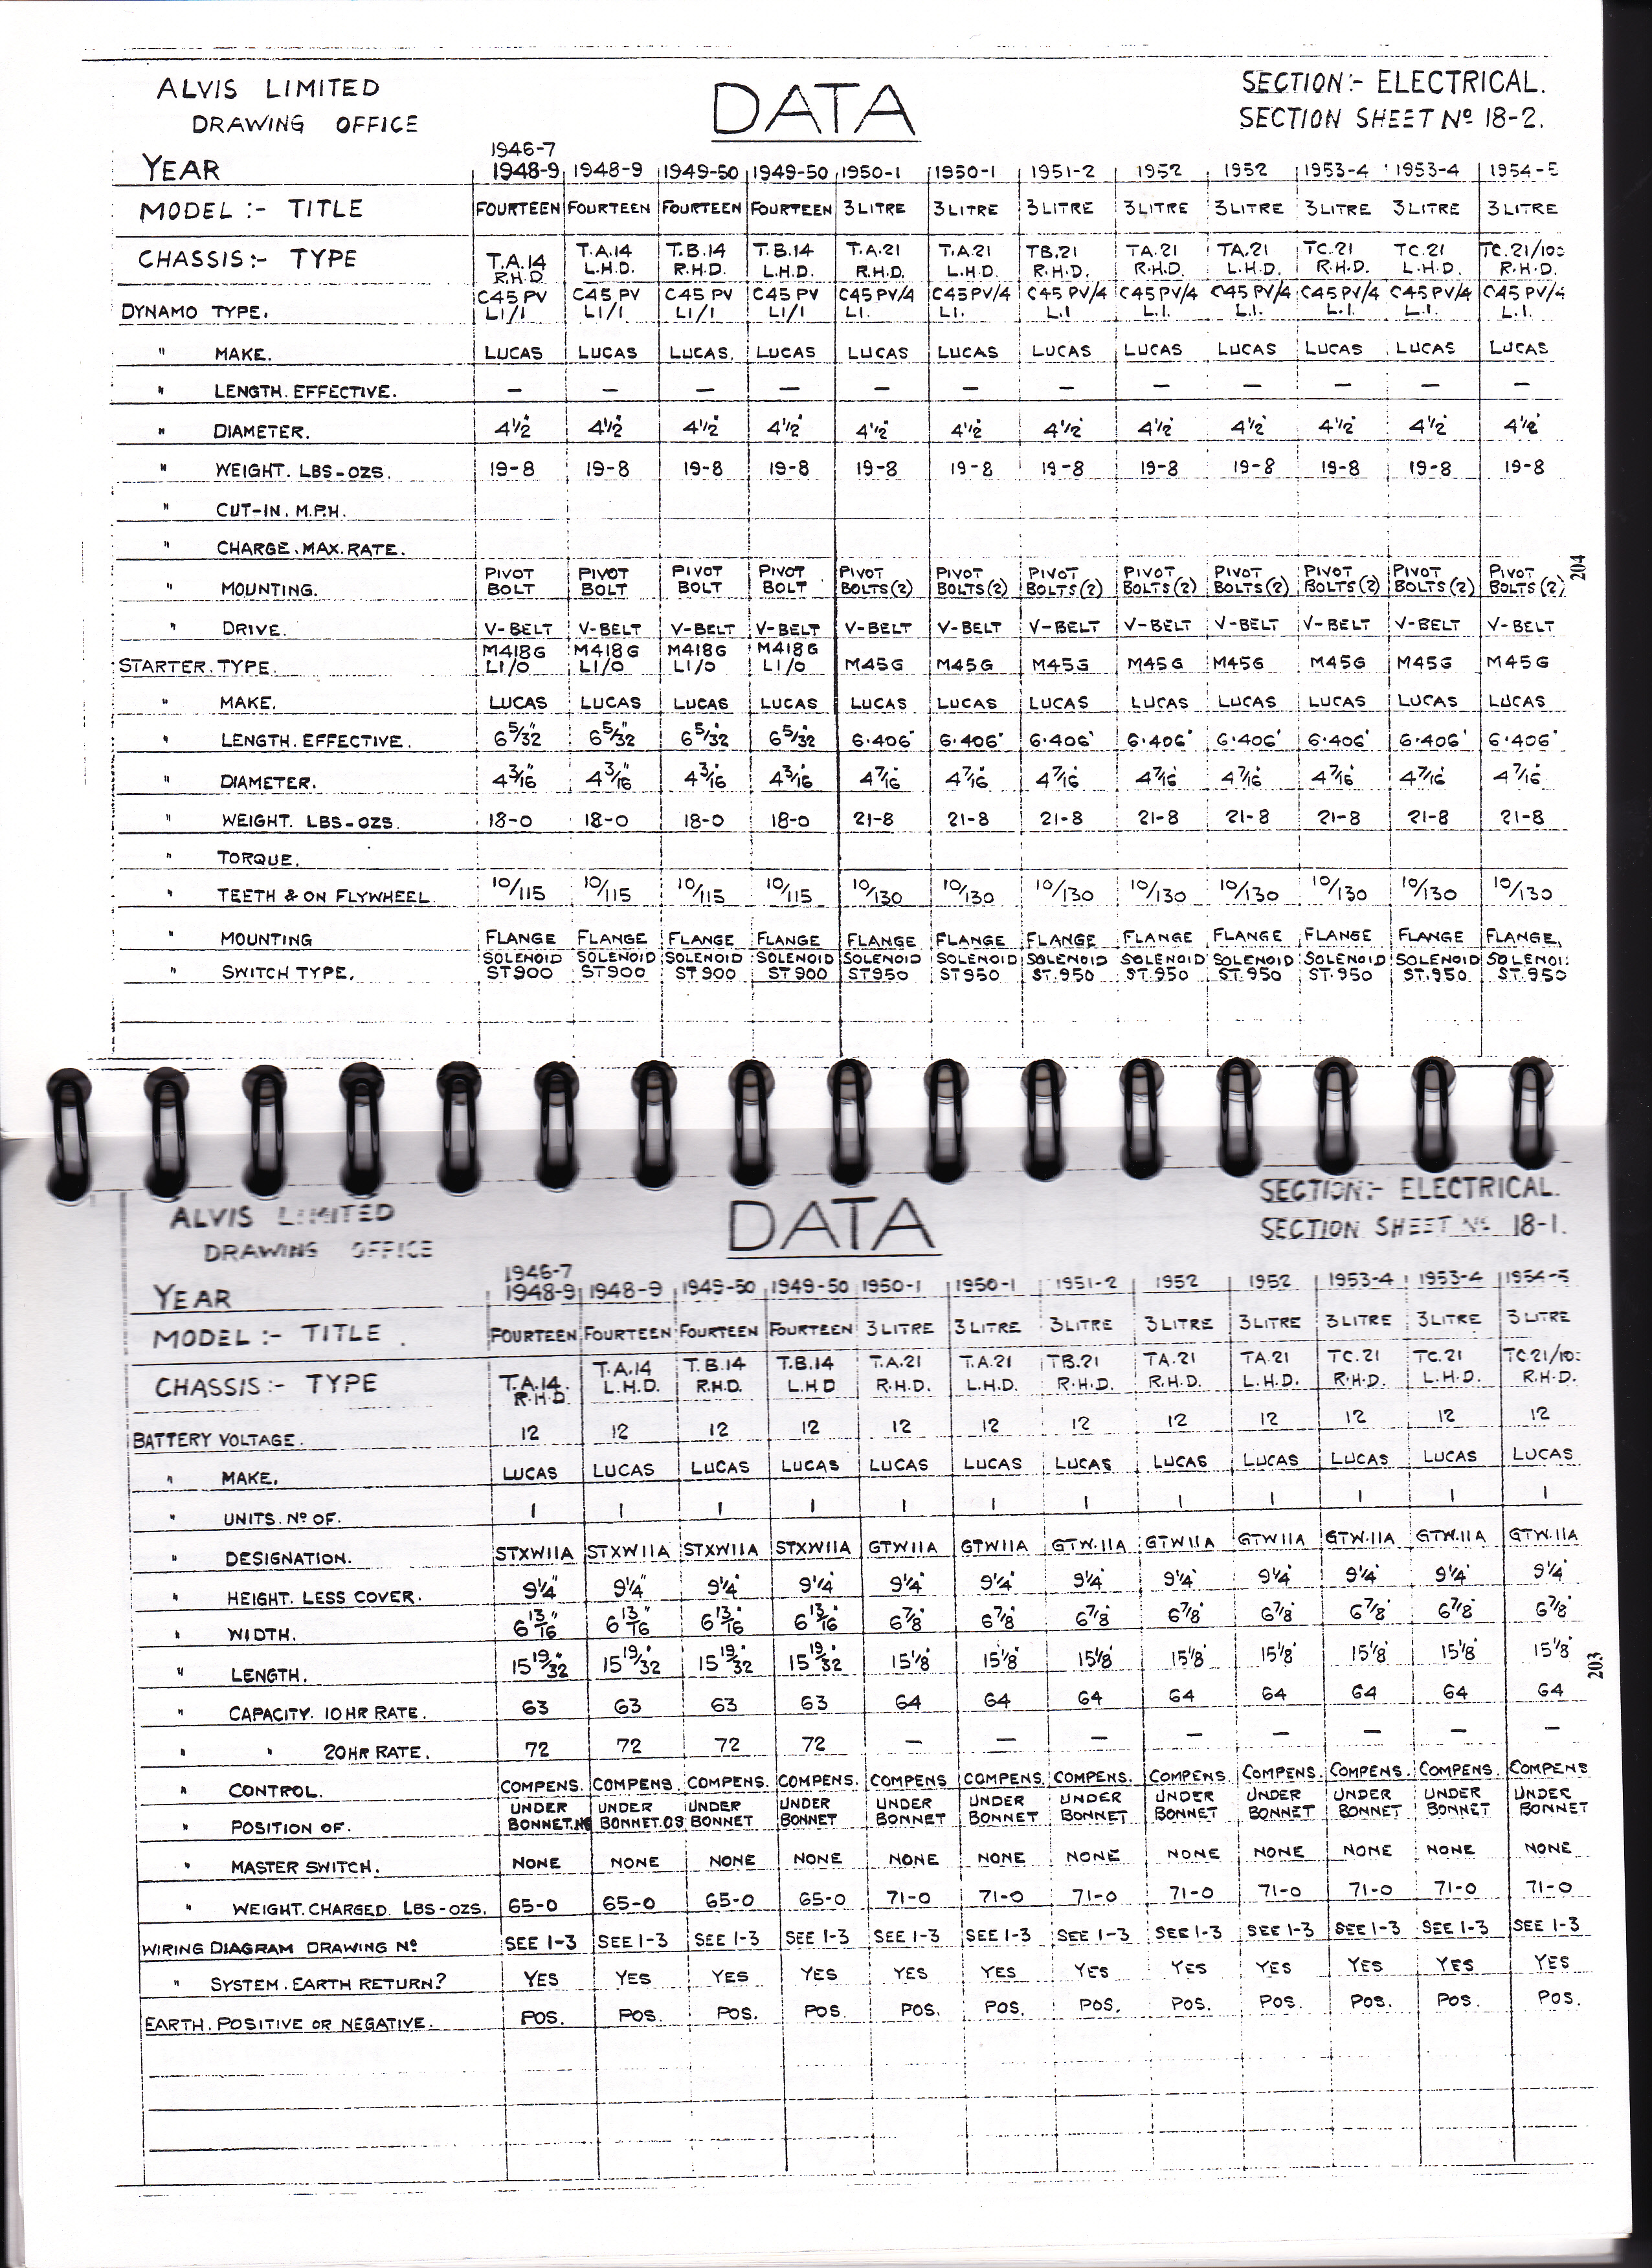 ALVIS LIMITED DATA SECTION:- ELECTRICAL.
DRAWING OFFICE SECTION SHEET Nº 18-2.
1946-7
YEAR 1948-9 1948-9 1949-50 1949-50 1950-1 1950-1 1951-2 1952 1952 1953-4 1953-4 1954-5
MODEL :- TITLE FOURTEEN FOURTEEN FOURTEEN FOURTEEN 3 LITRE 3 LITRE 3 LITRE 3 LITRE 3 LITRE 3 LITRE 3 LITRE 3 LITRE
CHASSIS:- TYPE T.A.14 T.A.14 T.B.14 T.B.14 T.A.21 T.A.21 TB.21 TA.21 TA.21 TC.21 TC.21 TC.21/100
R.H.D. L.H.D. R.H.D. L.H.D. R.H.D. L.H.D. R.H.D. R.H.D. L.H.D. R.H.D. L.H.D. R.H.D.
C45 PV C45 PV C45 PV C45 PV C45 PV/4 C45 PV/4 C45 PV/4 C45 PV/4 C45 PV/4 C45 PV/4 C45 PV/4 C45 PV/4
DYNAMO TYPE. L1/1 L1/1 L1/1 L1/1 L1. L1. L.1 L.1. L.1. L.1. L.1. L.1.
" MAKE. LUCAS LUCAS LUCAS. LUCAS LUCAS LUCAS LUCAS LUCAS LUCAS LUCAS LUCAS LUCAS
" LENGTH. EFFECTIVE. — — — — — — — — — — — —
" DIAMETER. 4½" 4½" 4½" 4½" 4½" 4½" 4½" 4½" 4½" 4½" 4½" 4½"
" WEIGHT. LBS-OZS. 19-8 19-8 19-8 19-8 19-8 19-8 19-8 19-8 19-8 19-8 19-8 19-8
" CUT-IN. M.P.H.
" CHARGE. MAX. RATE.
PIVOT PIVOT PIVOT PIVOT PIVOT PIVOT PIVOT PIVOT PIVOT PIVOT PIVOT PIVOT
" MOUNTING. BOLT BOLT BOLT BOLT BOLTS(2) BOLTS(2) BOLTS(2) BOLTS(2) BOLTS(2) BOLTS(2) BOLTS(2) BOLTS(2)
204
" DRIVE. V-BELT V-BELT V-BELT V-BELT V-BELT V-BELT V-BELT V-BELT V-BELT V-BELT V-BELT V-BELT
M418G M418G M418G M418G
STARTER. TYPE. L1/0 L1/0 L1/0 L1/0 M45G M45G M45G M45G M45G M45G M45G M45G
" MAKE. LUCAS LUCAS LUCAS LUCAS LUCAS LUCAS LUCAS LUCAS LUCAS LUCAS LUCAS LUCAS
" LENGTH. EFFECTIVE. 6 5/32" 6 5/32" 6 5/32" 6 5/32" 6·406" 6·406" 6·406" 6·406" 6·406" 6·406" 6·406" 6·406"
" DIAMETER. 4 3/16" 4 3/16" 4 3/16" 4 3/16" 4 7/16" 4 7/16" 4 7/16" 4 7/16" 4 7/16" 4 7/16" 4 7/16" 4 7/16"
" WEIGHT. LBS-OZS. 18-0 18-0 18-0 18-0 21-8 21-8 21-8 21-8 21-8 21-8 21-8 21-8
" TORQUE.
" TEETH & ON FLYWHEEL. 10/115 10/115 10/115 10/115 10/130 10/130 10/130 10/130 10/130 10/130 10/130 10/130
" MOUNTING FLANGE FLANGE FLANGE FLANGE FLANGE FLANGE FLANGE FLANGE FLANGE FLANGE FLANGE FLANGE.
SOLENOID SOLENOID SOLENOID SOLENOID SOLENOID SOLENOID SOLENOID SOLENOID SOLENOID SOLENOID SOLENOID SOLENOI
" SWITCH TYPE. ST900 ST900 ST900 ST900 ST950 ST950 ST.950 ST.950 ST.950 ST.950 ST.950 ST.950
ALVIS LIMITED DATA SECTION:- ELECTRICAL.
DRAWING OFFICE SECTION SHEET Nº 18-1.
1946-7
YEAR 1948-9 1948-9 1949-50 1949-50 1950-1 1950-1 1951-2 1952 1952 1953-4 1953-4 1954-5
MODEL :- TITLE. FOURTEEN FOURTEEN FOURTEEN FOURTEEN 3 LITRE 3 LITRE 3 LITRE 3 LITRE 3 LITRE 3 LITRE 3 LITRE 3 LITRE
CHASSIS:- TYPE T.A.14. T.A.14 T.B.14 T.B.14 T.A.21 T.A.21 TB.21 TA.21 TA.21 TC.21 TC.21 TC.21/10
R.H.D. L.H.D. R.H.D. L.H.D R.H.D. L.H.D. R.H.D. R.H.D. L.H.D. R.H.D. L.H.D. R.H.D.
BATTERY VOLTAGE. 12 12 12 12 12 12 12 12 12 12 12 12
" MAKE. LUCAS LUCAS LUCAS LUCAS LUCAS LUCAS LUCAS LUCAS LUCAS LUCAS LUCAS LUCAS
" UNITS. Nº OF. 1 1 1 1 1 1 1 1 1 1 1 1
" DESIGNATION. STXW11A STXW11A STXW11A STXW11A GTW11A GTW11A GTW.11A GTW11A GTW11A GTW.11A GTW.11A GTW.11A
" HEIGHT. LESS COVER. 9¼" 9¼" 9¼" 9¼" 9¼" 9¼" 9¼" 9¼" 9¼" 9¼" 9¼" 9¼"
" WIDTH. 6 13/16" 6 13/16" 6 13/16" 6 13/16" 6⅞" 6⅞" 6⅞" 6⅞" 6⅞" 6⅞" 6⅞" 6⅞"
" LENGTH. 15 19/32" 15 19/32" 15 19/32" 15 19/32" 15⅛" 15⅛" 15⅛" 15⅛" 15⅛" 15⅛" 15⅛" 15⅛"
203
" CAPACITY. 10 HR RATE. 63 63 63 63 64 64 64 64 64 64 64 64
" " 20HR RATE. 72 72 72 72 — — — — — — — —
" CONTROL. COMPENS. COMPENS. COMPENS. COMPENS. COMPENS COMPENS. COMPENS. COMPENS. COMPENS. COMPENS. COMPENS. COMPENS
UNDER UNDER UNDER UNDER UNDER UNDER UNDER UNDER UNDER UNDER UNDER UNDER
" POSITION OF. BONNET. BONNET.OS BONNET BONNET BONNET BONNET BONNET BONNET BONNET BONNET BONNET BONNET
" MASTER SWITCH. NONE NONE NONE NONE NONE NONE NONE NONE NONE NONE NONE NONE
" WEIGHT. CHARGED. LBS-OZS. 65-0 65-0 65-0 65-0 71-0 71-0 71-0 71-0 71-0 71-0 71-0 71-0
WIRING DIAGRAM DRAWING Nº SEE 1-3 SEE 1-3 SEE 1-3 SEE 1-3 SEE 1-3 SEE 1-3 SEE 1-3 SEE 1-3 SEE 1-3 SEE 1-3 SEE 1-3 SEE 1-3
" SYSTEM. EARTH RETURN? YES YES YES YES YES YES YES YES YES YES YES YES
EARTH. POSITIVE OR NEGATIVE. POS. POS. POS. POS. POS. POS. POS. POS. POS. POS. POS. POS.